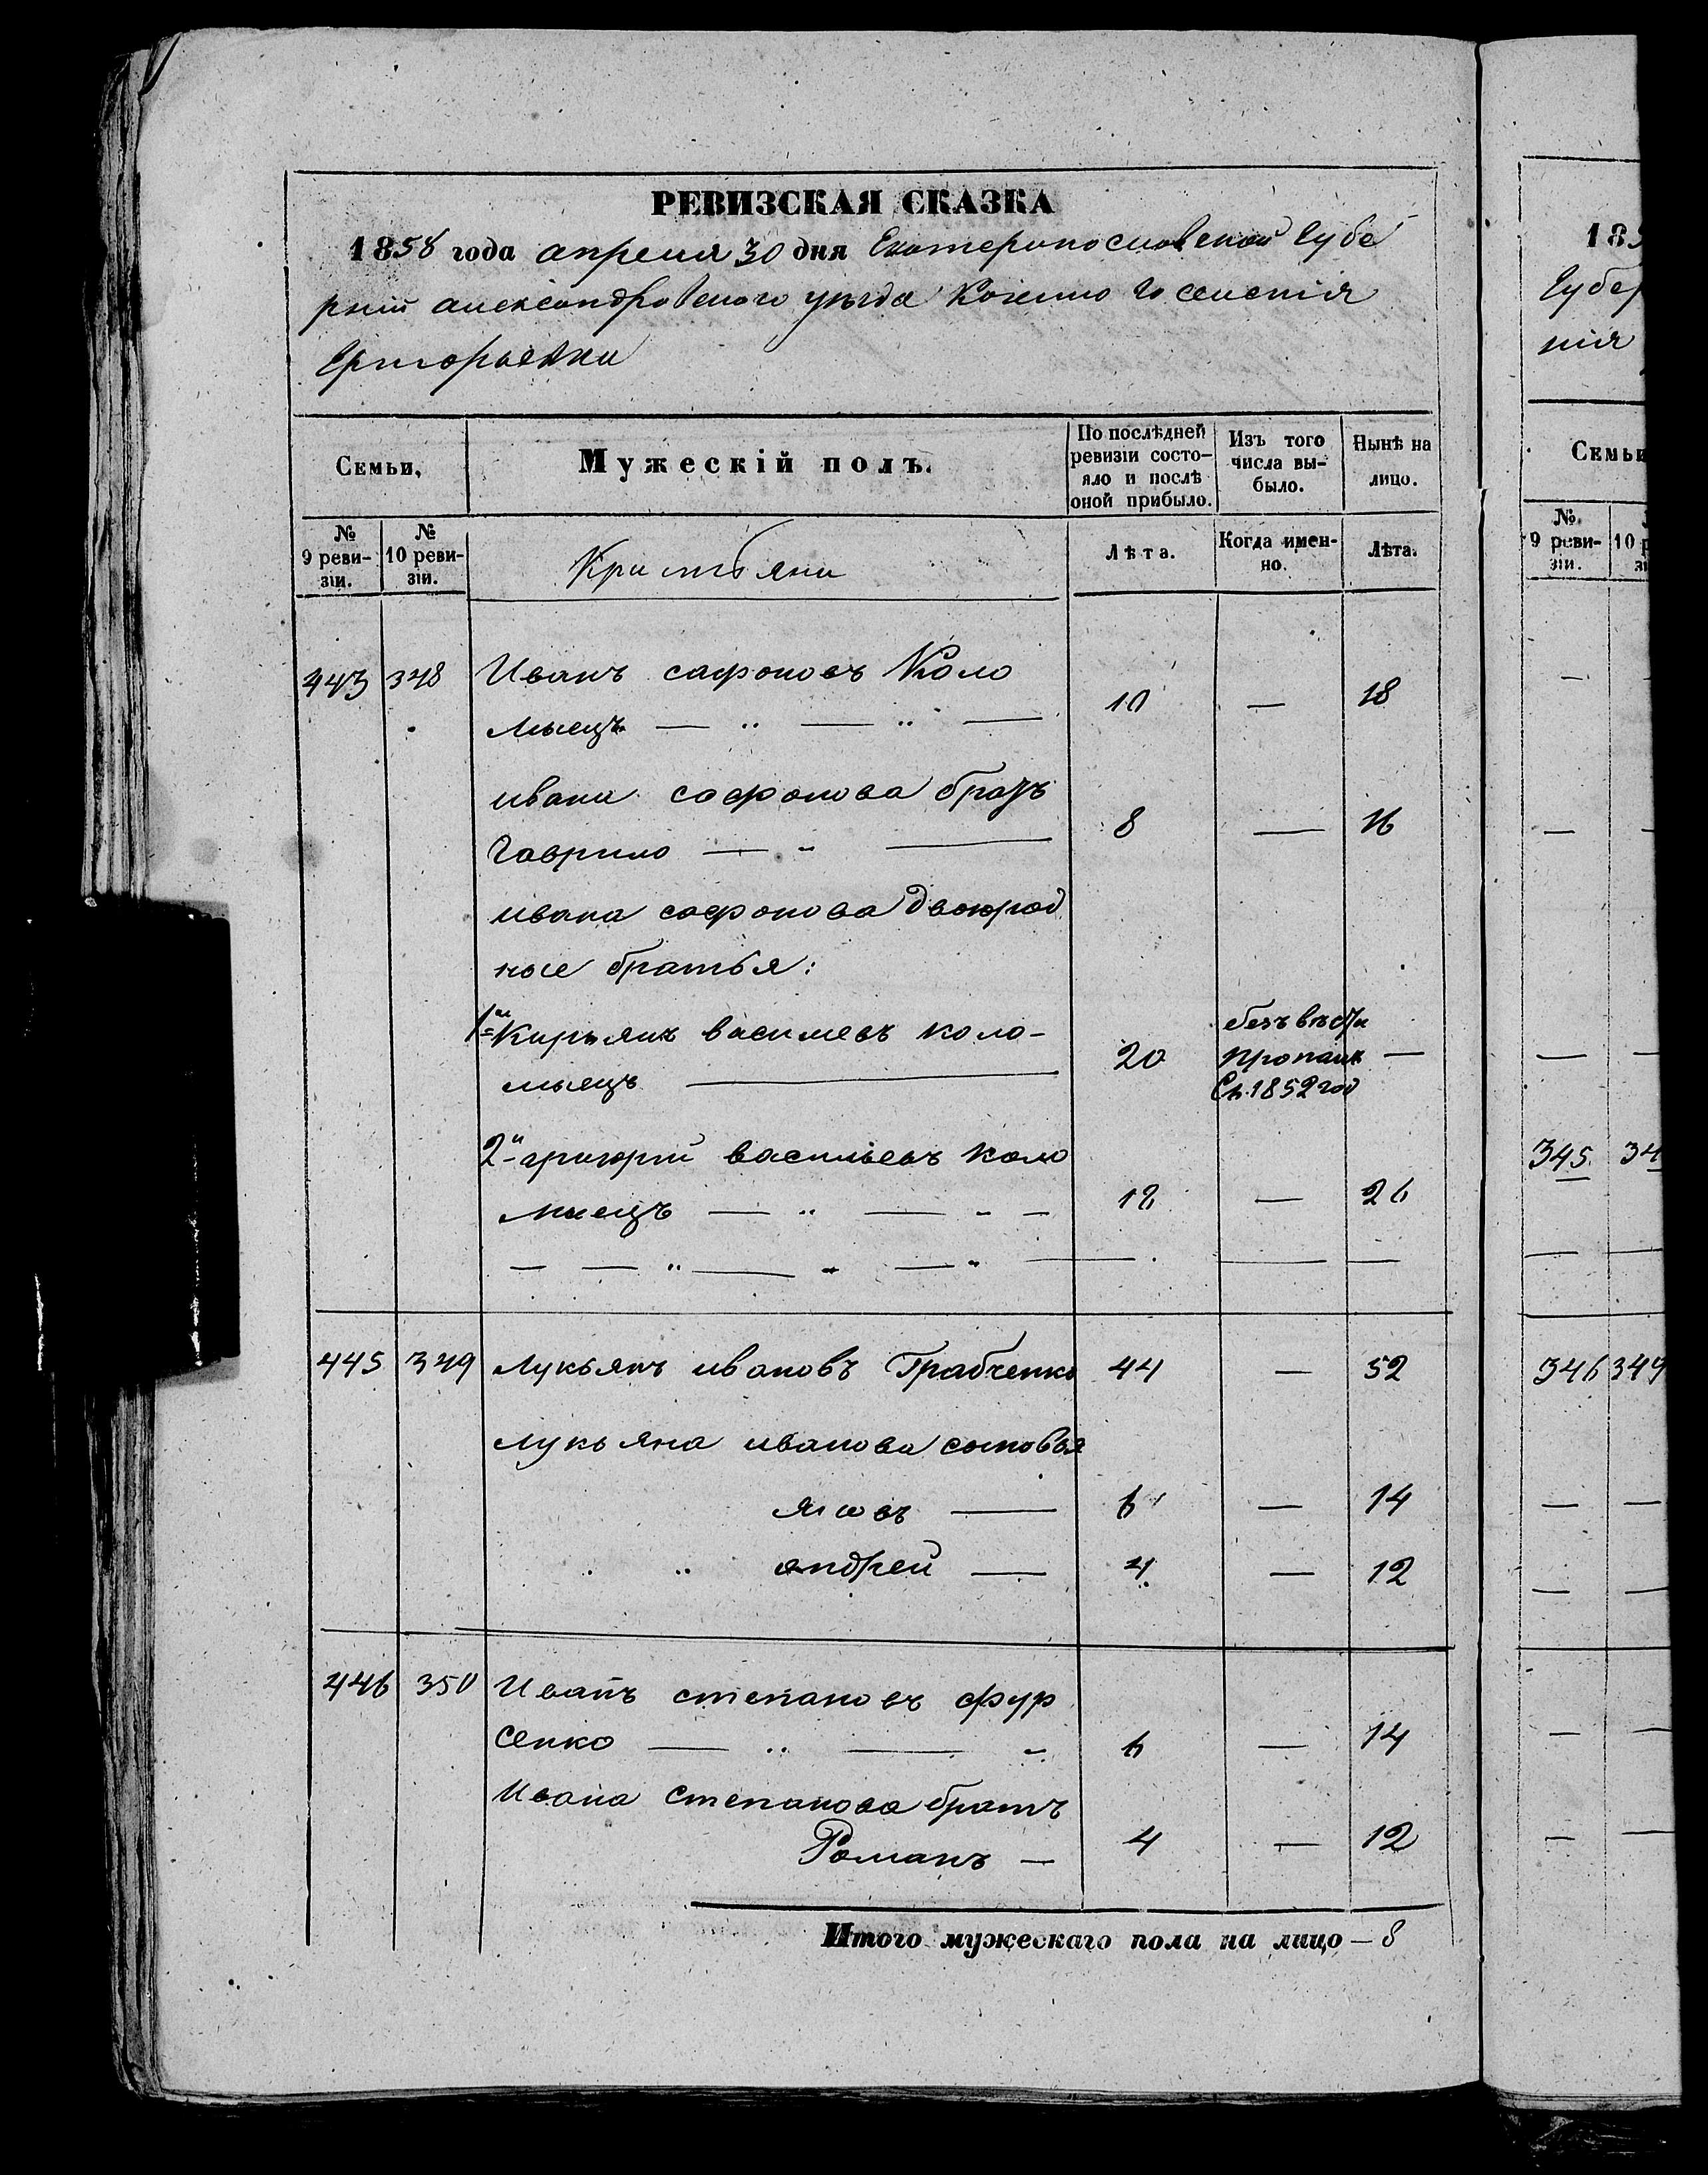 РЕВИЗСКАЯ СКАЗКА
1858 года апреля 30 дня Екатеринославской губе
рнии александровского уѣзда казенного селенія
Григорьевки
Семьи,
Мужескій полъ.
По послѣдней ревизіи состо-
яло и послѣ оной прибыло.
Изъ того числа вы-
было.
Нынѣ на лицо.
№ 9 реви-
зіи.
№ 10 реви-
зіи.
Кристьяни
Лѣта.
Когда имен-
но.
Лѣта.
443 348 Иванъ сафоновъ Коло
мыецъ — „ — „ — 10 — 18
ивана сафонова братъ
гаврило — „ — 8 — 16
ивана сафонова двоюрод
ные братья:
1й Кирьянъ василевъ коло-
мыецъ — 20 безъ вѣсти пропалъ Съ 1852 год —
2й григорий васильевъ коло
мыецъ — „ — „ — 18 — 26
— — „ — „ — „ — — —
445 349 лукьянъ ивановъ Грабченко 44 — 52
лукьяна иванова сыновья
яковъ — 6 — 14
„ андрей — 4 — 12
446 350 Иванъ степановъ фур
сенко — „ — „ 6 — 14
Ивана степанова братъ
Романъ — 4 — 12
Итого мужескаго пола на лицо — 8
185
Губер
нія
Семьи
№ 9 реви-
зіи.
10 р
зі
345 34
346 349